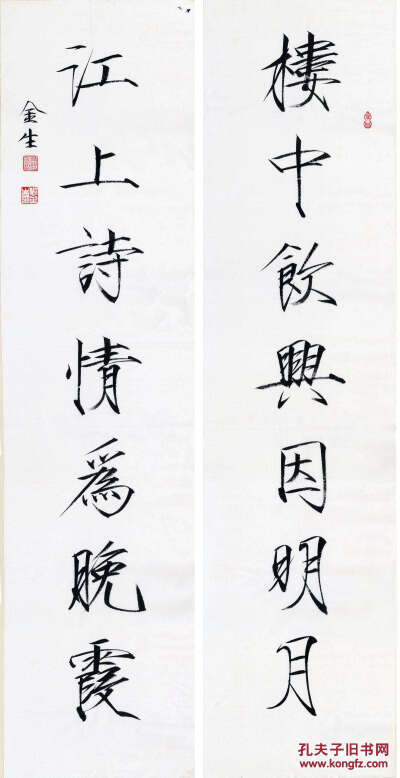 樓中飲興因明月
江上詩情爲晚霞
金生
孔夫子旧书网
www.kongfz.com